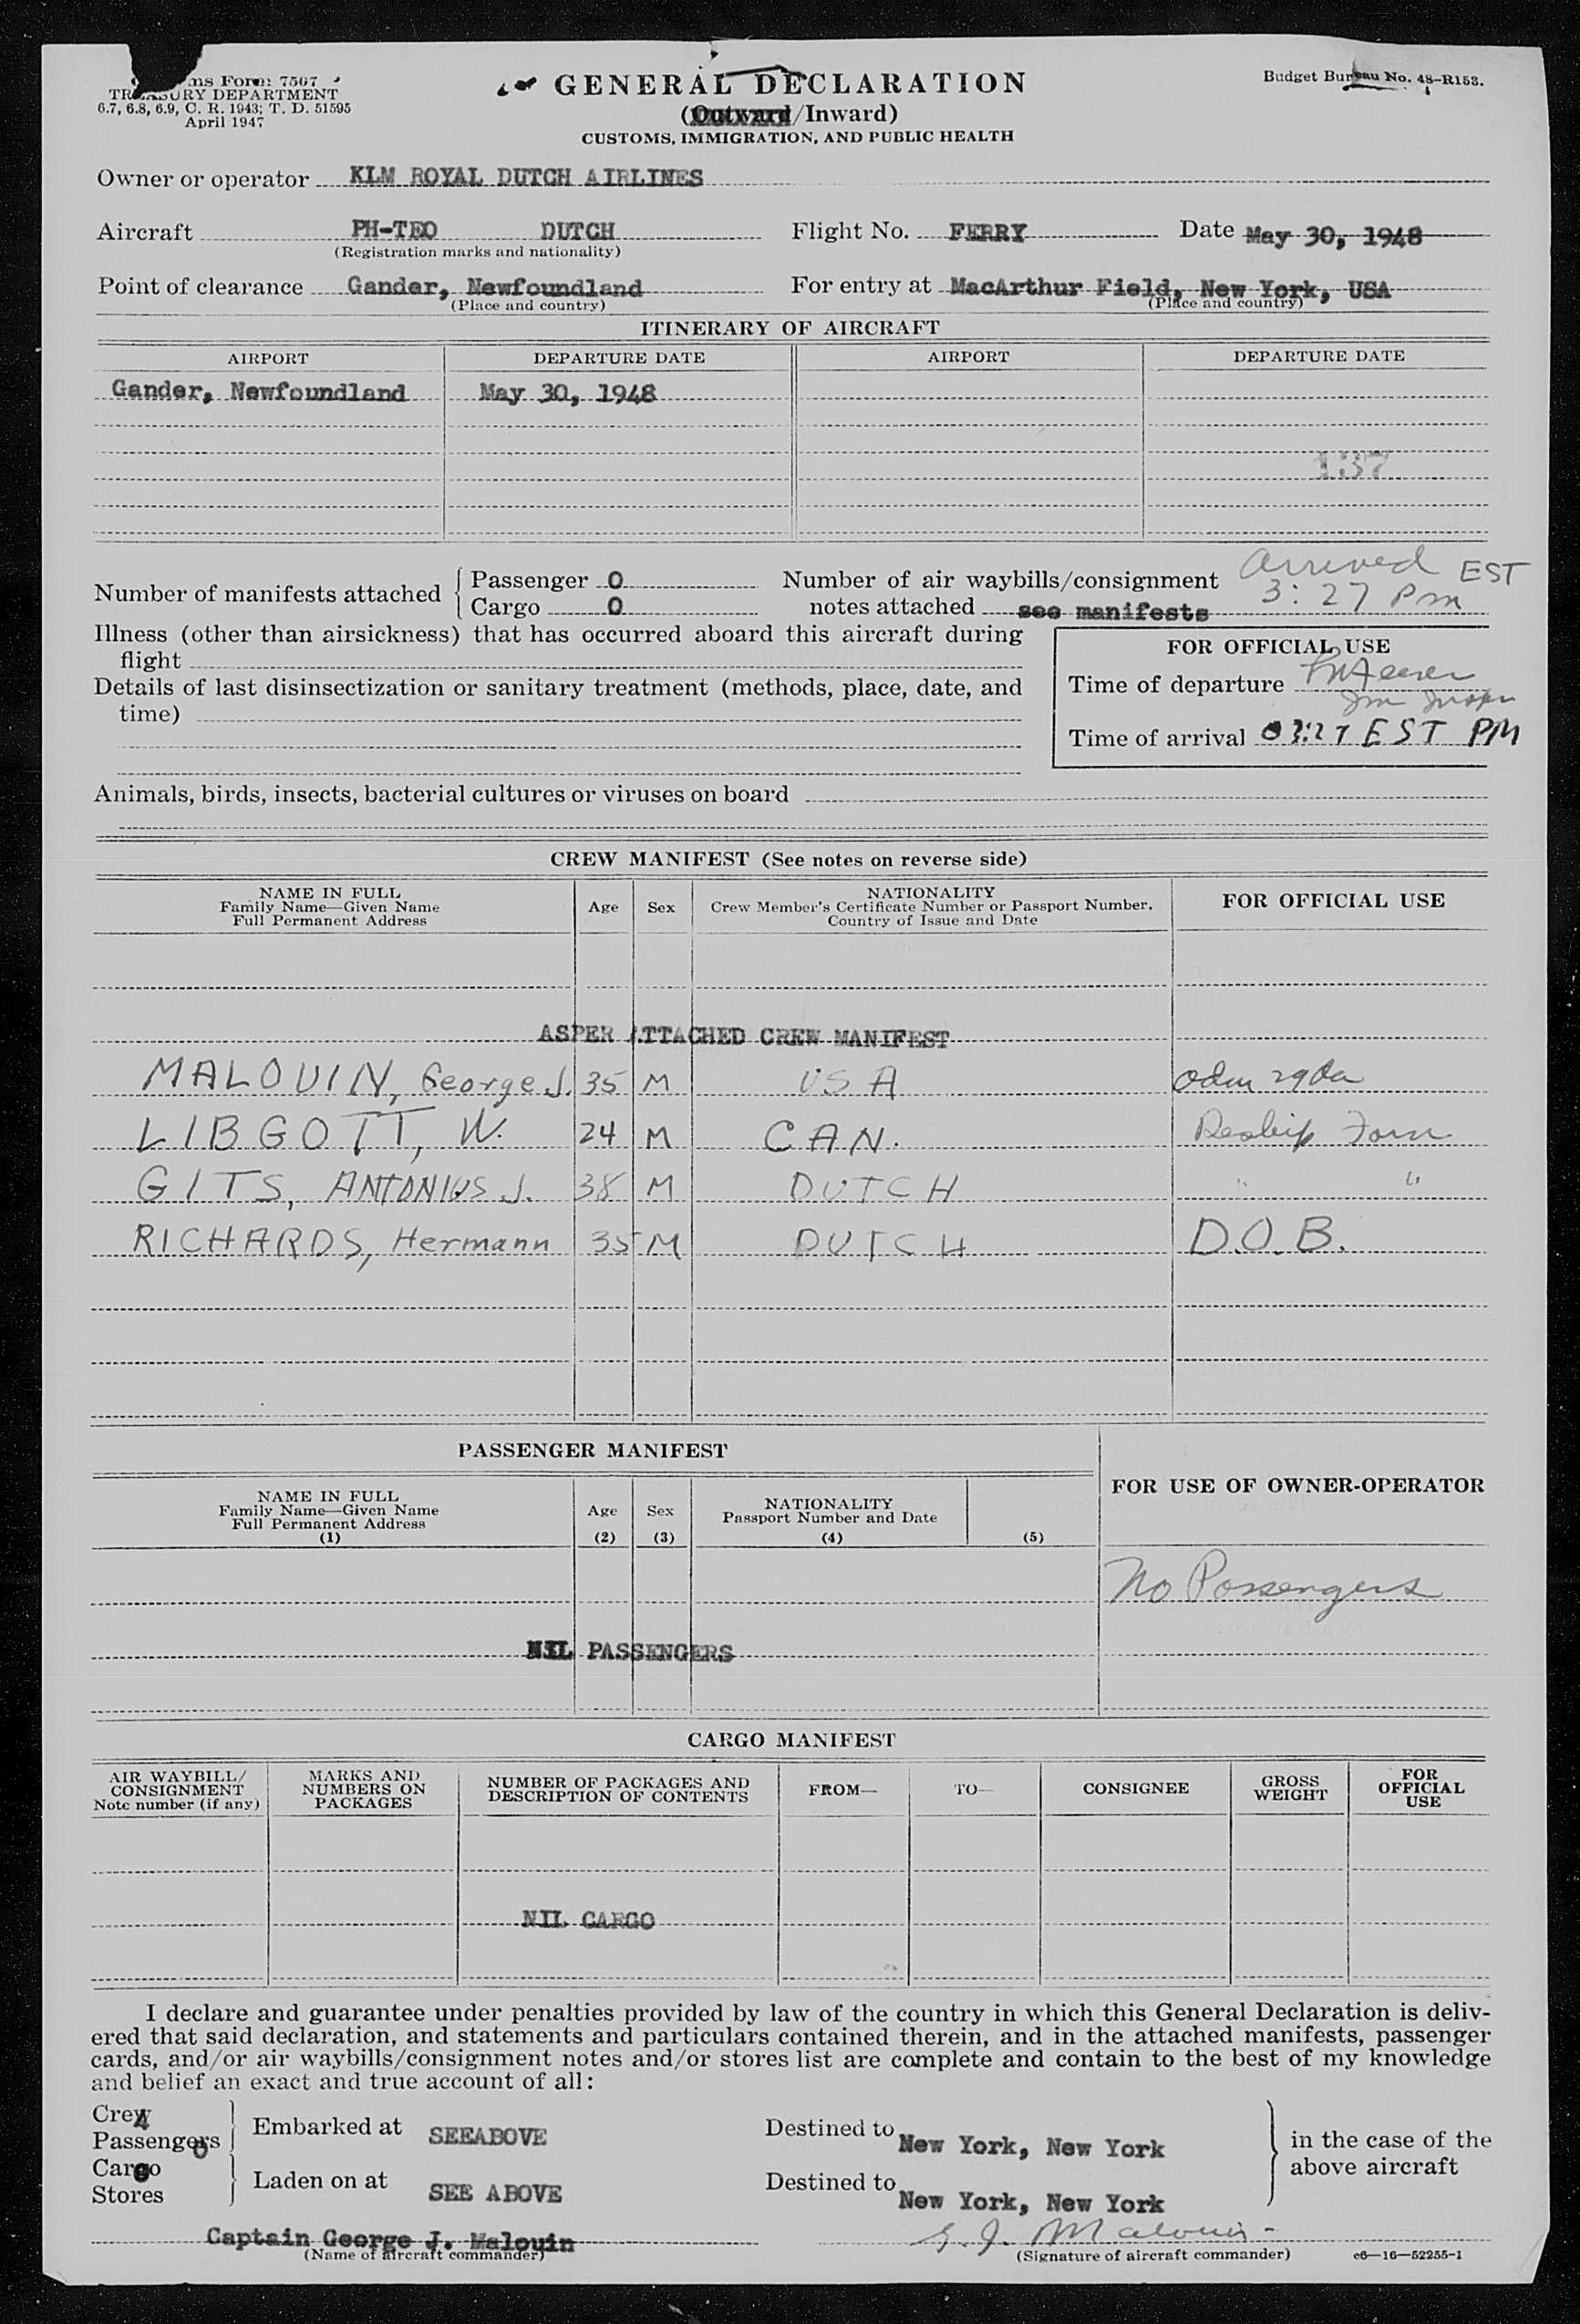 ms Form 7507
TREASURY DEPARTMENT
6.7, 6.8, 6.9, C. R. 1943; T. D. 51595
April 1947
GENERAL DECLARATION
(Outward/Inward)
CUSTOMS, IMMIGRATION, AND PUBLIC HEALTH
Budget Bureau No. 48-R153.
Owner or operator KLM ROYAL DUTCH AIRLINES
Aircraft PH-TEO DUTCH Flight No. FERRY Date May 30, 1948
(Registration marks and nationality)
Point of clearance Gander, Newfoundland For entry at MacArthur Field, New York, USA
(Place and country) (Place and country)
ITINERARY OF AIRCRAFT
AIRPORT DEPARTURE DATE AIRPORT DEPARTURE DATE
Gander, Newfoundland May 30, 1948
137
Number of manifests attached Passenger 0 Number of air waybills/consignment Arrived EST
Cargo 0 notes attached see manifests 3:27 Pm
Illness (other than airsickness) that has occurred aboard this aircraft during
flight
FOR OFFICIAL USE
Details of last disinsectization or sanitary treatment (methods, place, date, and
time)
Time of departure
Time of arrival 03:27 EST PM
Animals, birds, insects, bacterial cultures or viruses on board
CREW MANIFEST (See notes on reverse side)
NAME IN FULL
Family Name—Given Name
Full Permanent Address
Age Sex
NATIONALITY
Crew Member's Certificate Number or Passport Number,
Country of Issue and Date
FOR OFFICIAL USE
ASPER ATTACHED CREW MANIFEST
MALOUIN, George J. 35 M USA
LIBGOTT, W. 24 M CAN.
GITS, ANTONIUS J. 38 M DUTCH " "
RICHARDS, Hermann 35 M DUTCH D.O.B.
PASSENGER MANIFEST
FOR USE OF OWNER-OPERATOR
NAME IN FULL
Family Name—Given Name
Full Permanent Address
(1)
Age
(2)
Sex
(3)
NATIONALITY
Passport Number and Date
(4)
(5)
No Passengers
NIL PASSENGERS
CARGO MANIFEST
AIR WAYBILL/
CONSIGNMENT
Note number (if any)
MARKS AND
NUMBERS ON
PACKAGES
NUMBER OF PACKAGES AND
DESCRIPTION OF CONTENTS
FROM—
TO—
CONSIGNEE
GROSS
WEIGHT
FOR
OFFICIAL
USE
NIL CARGO
I declare and guarantee under penalties provided by law of the country in which this General Declaration is deliv-
ered that said declaration, and statements and particulars contained therein, and in the attached manifests, passenger
cards, and/or air waybills/consignment notes and/or stores list are complete and contain to the best of my knowledge
and belief an exact and true account of all:
Crew 4
Passengers 0
Embarked at SEEABOVE Destined to New York, New York
Cargo 0
Stores
Laden on at SEE ABOVE Destined to New York, New York
in the case of the
above aircraft
Captain George J. Malouin G. J. Malouin
(Name of aircraft commander) (Signature of aircraft commander) c6—16—52255-1